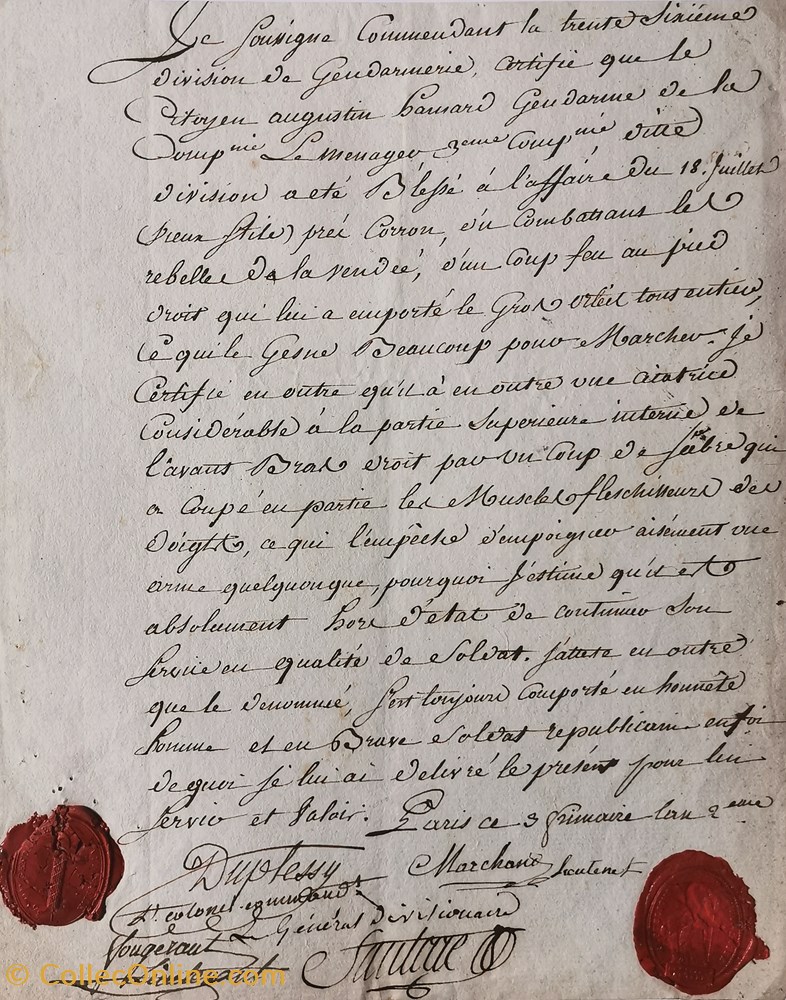 Je Soussigné Commendant la trente Sixiéme
division de Gendarmerie, Certifie que le
Citoyen augustin hansard Gendarme de la
Comp.nie Le menager 3eme Comp.nie ditte
division a eté Blessé á l'affaire du 18. Juillet
(vieux Stile) prés Corron, en Combattans les
rebelles de la vendeé, d'un Coup feu au pied
droit qui lui a emporté le Gros orteil tout entier,
Ce qui le Gesne Beaucoup pour Marcher. Je
Certifie en outre qu'il à en outre une cicatrice
Considérable á la partie Superieure interne de
l'avant Bras droit par un Coup de Sabre qui
a Coupé en partie les Muscles fleschisseurs des
doigts, ce qui l'empêche d'empoigner aisément une
arme quelquonque, pourquoi J'estime qu'il est
absolument hors d'état de continuer Son
Service en qualité de Soldat. J'atteste en outre
que le denommé, s'est toujours comporté en honnête
homme et en Brave Soldat republicain en foi
de quoi je lui ai delivré le présent pour lui
Servir et Valoir. Paris ce 3 frimaire lan 2eme
Duplessy Marchand lieutenet
Lt colonel commandt
Fougerant Le Général divisionaire
Santerre
© CollecOnline.com